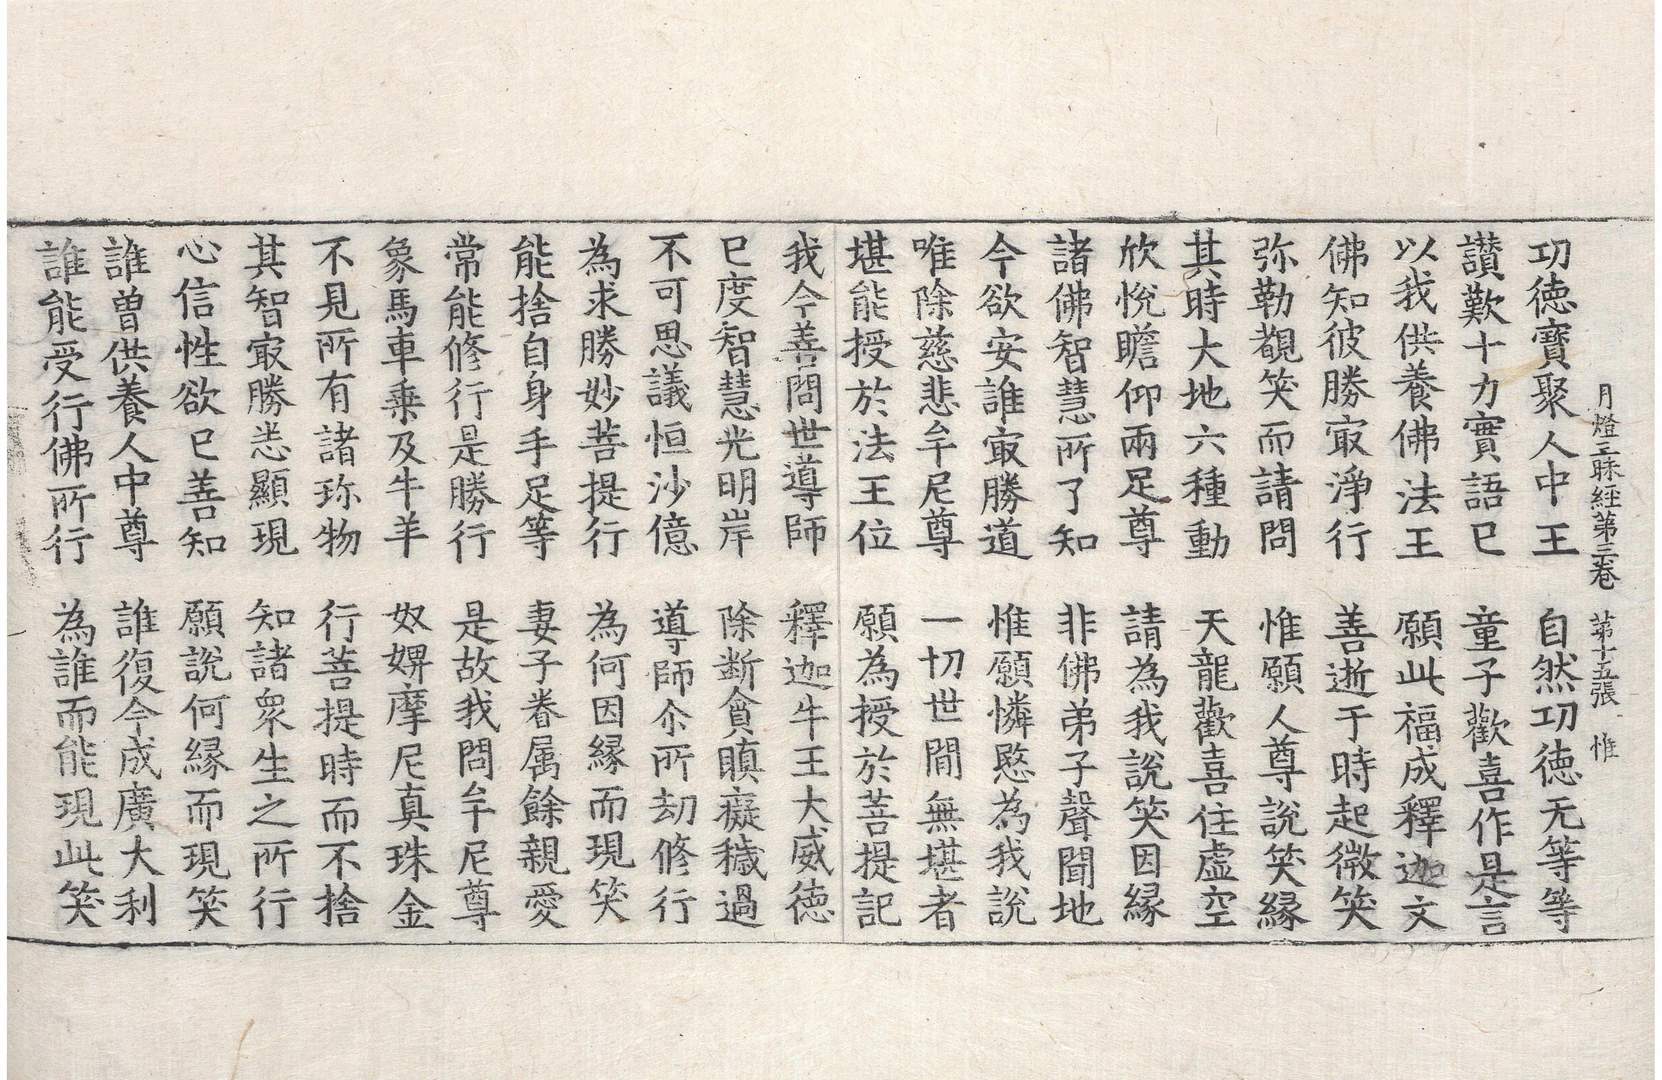 月燈三昧經第三卷　第十五張　惟
功德寶聚人中王　自然功德无等等
讃歎十力實語已　童子歡喜作是言
以我供養佛法王　願此福成釋迦文
佛知彼勝㝡淨行　善逝于時起微笑
弥勒覩笑而請問　惟願人尊說笑緣
其時大地六種動　天龍歡喜住虛空
欣悅瞻仰兩足尊　請為我說笑因緣
諸佛智慧所了知　非佛弟子聲聞地
今欲安誰㝡勝道　惟願憐愍為我說
唯除慈悲牟尼尊　一切世間無堪者
堪能授於法王位　願為授於菩提記
我今善問世導師　釋迦牛王大威德
已度智慧光明岸　除斷貪瞋癡穢過
不可思議恒沙億　導師尒所劫修行
為求勝妙菩提行　為何因緣而現笑
能捨自身手足等　妻子眷属餘親愛
常能修行是勝行　是故我問牟尼尊
象馬車乗及牛羊　奴婢摩尼真珠金
不見所有諸珎物　行菩提時而不捨
其智㝡勝悉顯現　知諸衆生之所行
心信性欲已善知　願說何緣而現笑
誰曽供養人中尊　誰復今成廣大利
誰能受行佛所行　為誰而能現此笑